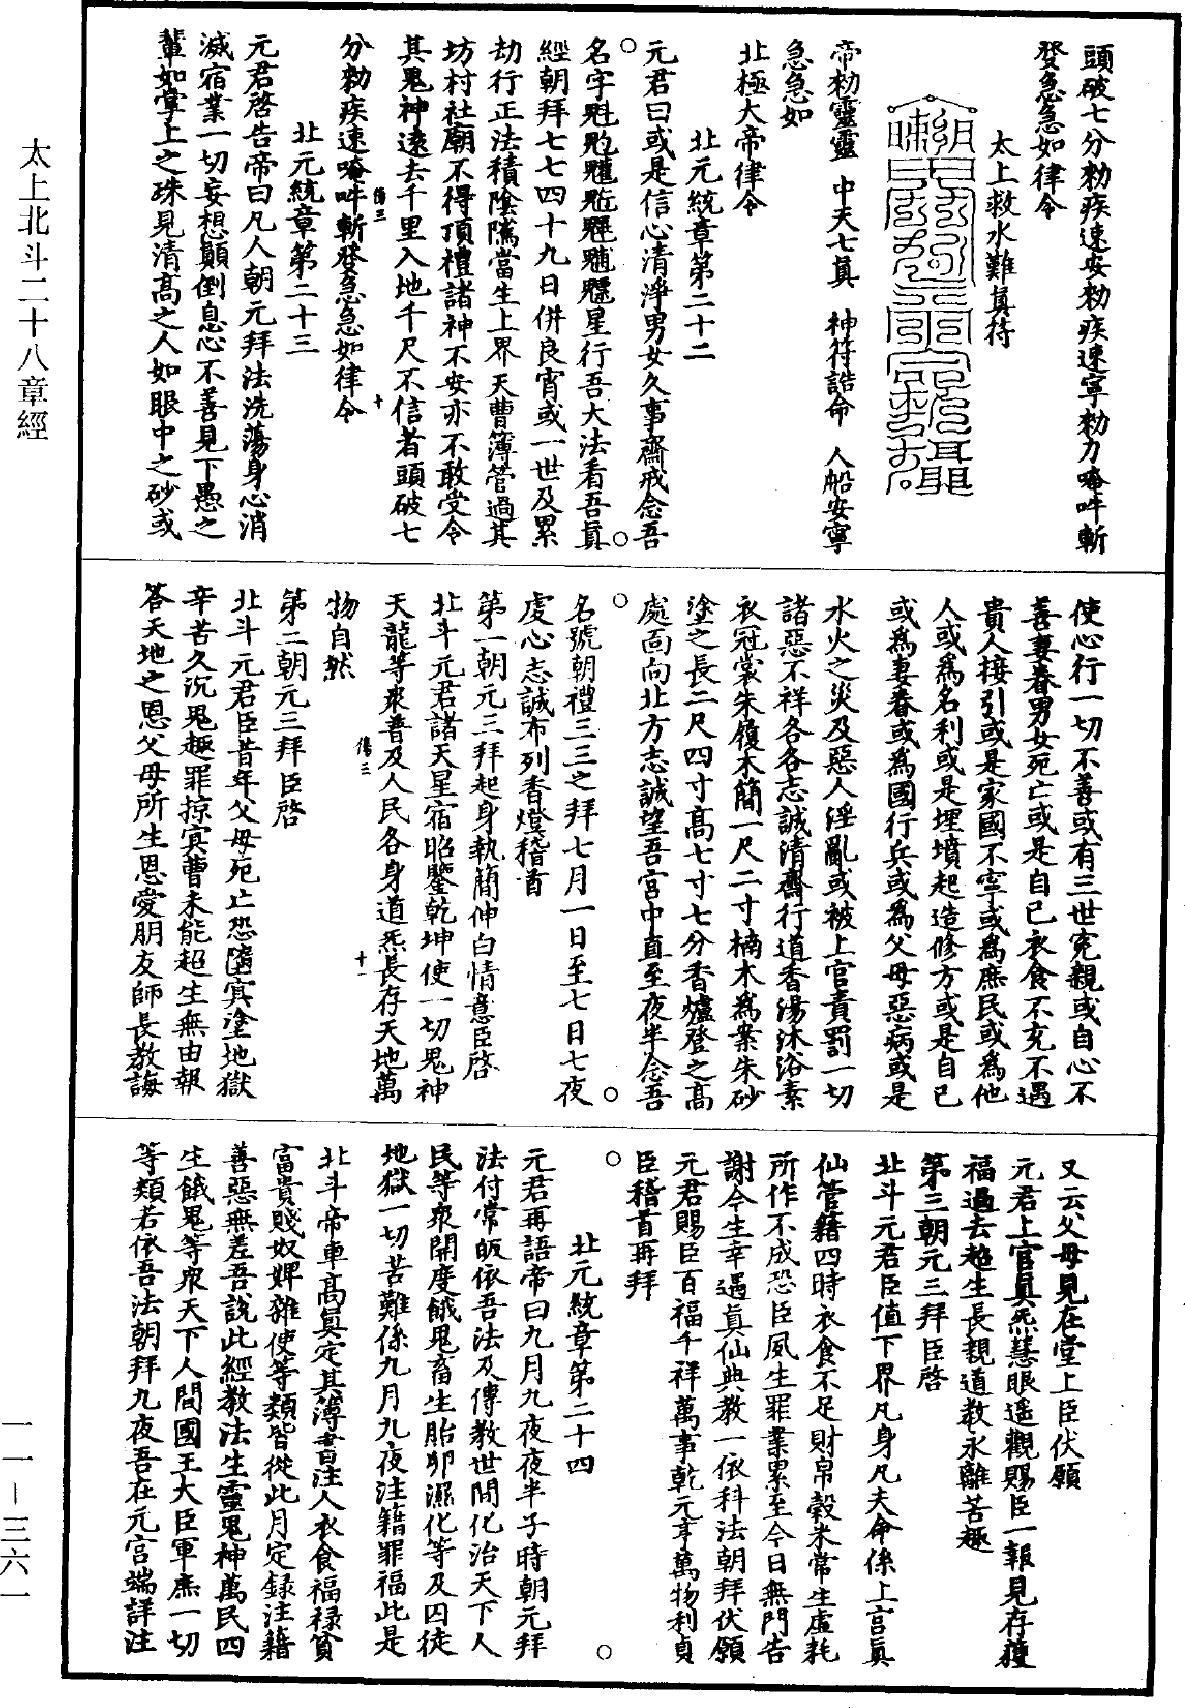 頭破七分勑疾速安勑疾速寧勑力唵吽斬
發急急如律令
太上救水難眞符
帝勑靈靈　中天七眞　神符誥命　人船安寧
急急如
北極大帝律令
北元統章第二十二
元君曰或是信心清淨男女久事齋戒念吾
名字魁𩲃䰢魓魒星行吾大法看吾眞
經朝拜七七四十九日併良宵或一世及累
劫行正法積陰隲當生上界天曹簿管過其
坊村社廟不得頂禮諸神不安亦不敢受令
其鬼神遠去千里入地千尺不信者頭破七
傷三
十
分勑疾速唵吽斬發急急如律令
北元統章第二十三
元君啓告帝曰凡人朝元拜法洗蕩身心消
滅宿業一切妄想顚倒息心不善見下愚之
輩如掌上之珠見清高之人如眼中之砂或
使心行一切不善或有三世寃親或自心不
善妻眷男女死亡或是自已衣食不充不遇
貴人接引或是家國不寧或爲庶民或爲他
人或爲名利或是埋墳起造修方或是自已
或爲妻眷或爲國行兵或爲父母惡病或是
水火之災及惡人淫亂或被上官責罰一切
諸惡不祥各各志誠清齋行道香湯沐浴素
衣冠裳朱履木簡一尺二寸楠木爲案朱砂
塗之長二尺四寸高七寸七分香爐登之高
處面向北方志誠望吾宮中直至夜半念吾
名號朝禮三三之拜七月一日至七日七夜
虔心志誠布列香燈稽首
第一朝元三拜起身執簡伸白情意臣啓
北斗元君諸天星宿昭鑒乾坤使一切鬼神
天龍等衆普及人民各身道炁長存天地萬
傷三
十一
物自然
第二朝元三拜臣啓
北斗元君臣昔年父母死亡恐墮冥塗地獄
辛苦久沉鬼趣罪掠冥曹未能超生無由報
答天地之恩父母所生恩愛朋友師長教誨
又云父母見在堂上臣伏願
元君上官眞炁慧眼遥觀賜臣一報見存獲
福過去超生長親道教永離苦趣
第三朝元三拜臣啓
北斗元君臣值下界凡身凡夫命係上宮眞
仙管籍四時衣食不足財帛穀米常生虛耗
所作不成恐臣夙生罪業累至今日無門告
謝今生幸遇眞仙典教一依科法朝拜伏願
元君賜臣百福千祥萬事乾元亨萬物利貞
臣稽首再拜
北元統章第二十四
元君再語帝曰九月九夜夜半子時朝元拜
法付常皈依吾法及傳教世間化治天下人
民等衆開度餓鬼畜生胎卵濕化等及四徒
地獄一切苦難係九月九夜注籍罪福此是
北斗帝車高眞定其簿書注人衣食福祿貧
富貴賤奴婢雜使等類皆從此月定録注籍
善惡無差吾說此經教法生靈鬼神萬民四
生餓鬼等衆天下人間國王大臣軍庶一切
等類若依吾法朝拜九夜吾在元宮端詳注
太上北斗二十八章經
一一－三六一